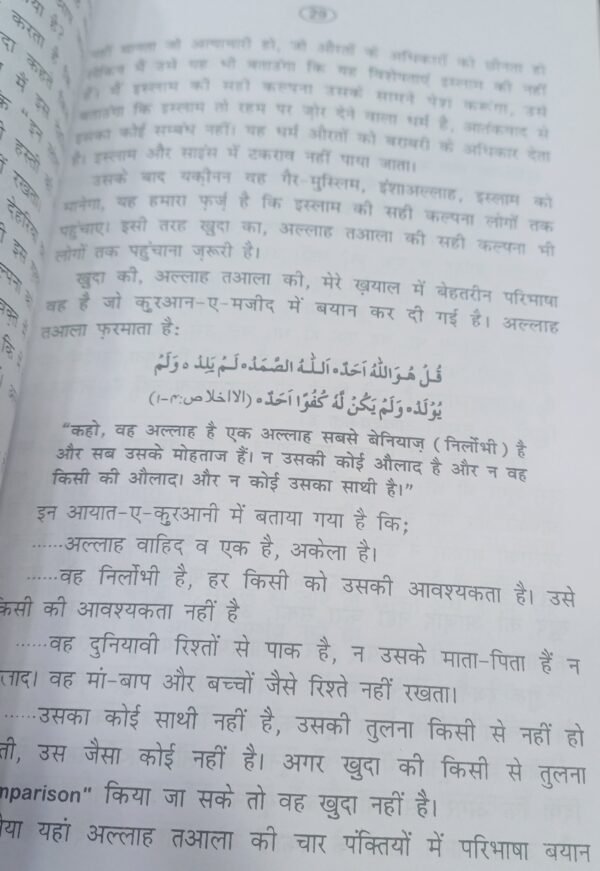 29
नहीं मानता जो अत्याचारी हो, जो औरतों के अधिकारों को छीनता हो
लेकिन मैं उसे यह भी बताऊंगा कि यह विशेषताएं इस्लाम की नहीं
हैं। मैं इस्लाम की सही कल्पना उसके सामने पेश करूंगा, उसे
बताऊंगा कि इस्लाम तो रहम पर ज़ोर देने वाला धर्म है, आतंकवाद से
इसका कोई सम्बंध नहीं। यह धर्म औरतों को बराबरी के अधिकार देता
है। इस्लाम और साइंस में टकराव नहीं पाया जाता।
उसके बाद यक़ीनन वह ग़ैर-मुस्लिम, इंशाअल्लाह, इस्लाम को
मानेगा, यह हमारा फ़र्ज़ है कि इस्लाम की सही कल्पना लोगों तक
पहुंचाएं। इसी तरह ख़ुदा का, अल्लाह तआला की सही कल्पना भी
लोगों तक पहुंचाना ज़रूरी है।
ख़ुदा की, अल्लाह तआला की, मेरे ख़याल में बेहतरीन परिभाषा
वह है जो कुरआन-ए-मजीद में बयान कर दी गई है। अल्लाह
तआला फ़रमाता है:
قُلْ هُوَ اللّٰهُ اَحَدٌ ه اَللّٰهُ الصَّمَدُ ه لَمْ يَلِدْ ه وَلَمْ
يُوْلَدْ ه وَلَمْ يَكُنْ لَّهٗ كُفُوًا اَحَدٌ ه (الاخلاص:۴-۱)
“कहो, वह अल्लाह है एक अल्लाह सबसे बेनियाज़ (निर्लोभी) है
और सब उसके मोहताज हैं। न उसकी कोई औलाद है और न वह
किसी की औलाद। और न कोई उसका साथी है।”
इन आयात-ए-क़ुरआनी में बताया गया है कि;
......अल्लाह वाहिद व एक है, अकेला है।
......वह निर्लोभी है, हर किसी को उसकी आवश्यकता है। उसे
किसी की आवश्यकता नहीं है
......वह दुनियावी रिश्तों से पाक है, न उसके माता-पिता हैं न
लाद। वह मां-बाप और बच्चों जैसे रिश्ते नहीं रखता।
......उसका कोई साथी नहीं है, उसकी तुलना किसी से नहीं हो
ती, उस जैसा कोई नहीं है। अगर ख़ुदा की किसी से तुलना
mparison" किया जा सके तो वह ख़ुदा नहीं है।
या यहां अल्लाह तआला की चार पंक्तियों में परिभाषा बयान